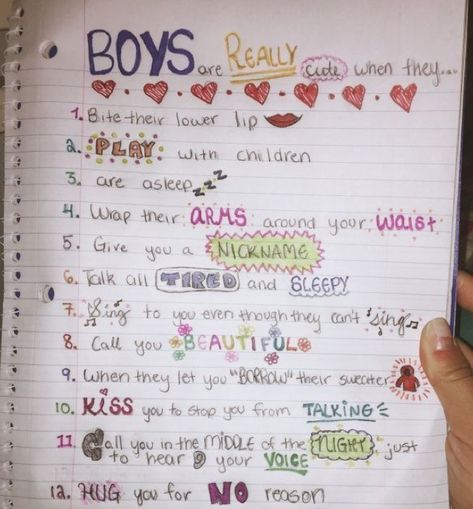 BOYS are REALLY cute when they...
1. Bite their lower lip
2. PLAY with children
3. are asleep zzz
4. Wrap their ARMS around your waist
5. Give you a NICKNAME
6. Talk all TIRED and SLEEPY
7. Sing to you even though they can't sing
8. Call you BEAUTIFUL
9. When they let you "BORROW" their sweater
10. Kiss you to stop you from TALKING
11. Call you in the MIDDLE of the NIGHT just
to hear your VOICE
12. HUG you for NO reason